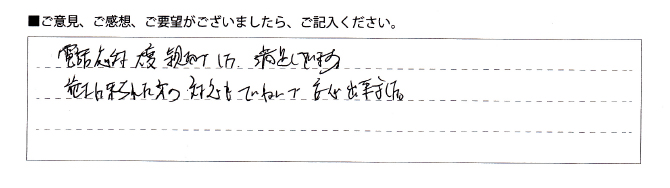 ■ご意見、ご感想、ご要望がございましたら、ご記入ください。
電話応対 度 親切で した 満足しています
施工に来られた方の 対応も ていねいで 安心出来ました。